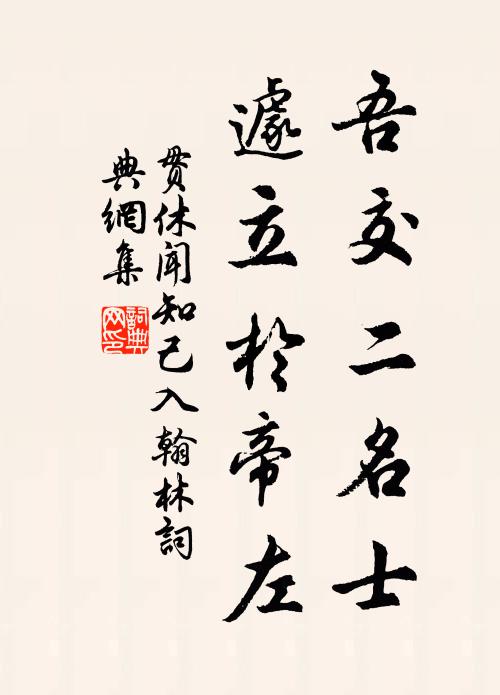 吾交二名士
遽立於帝左
贯休闻知己入翰林詞
典網集
詞典
网印